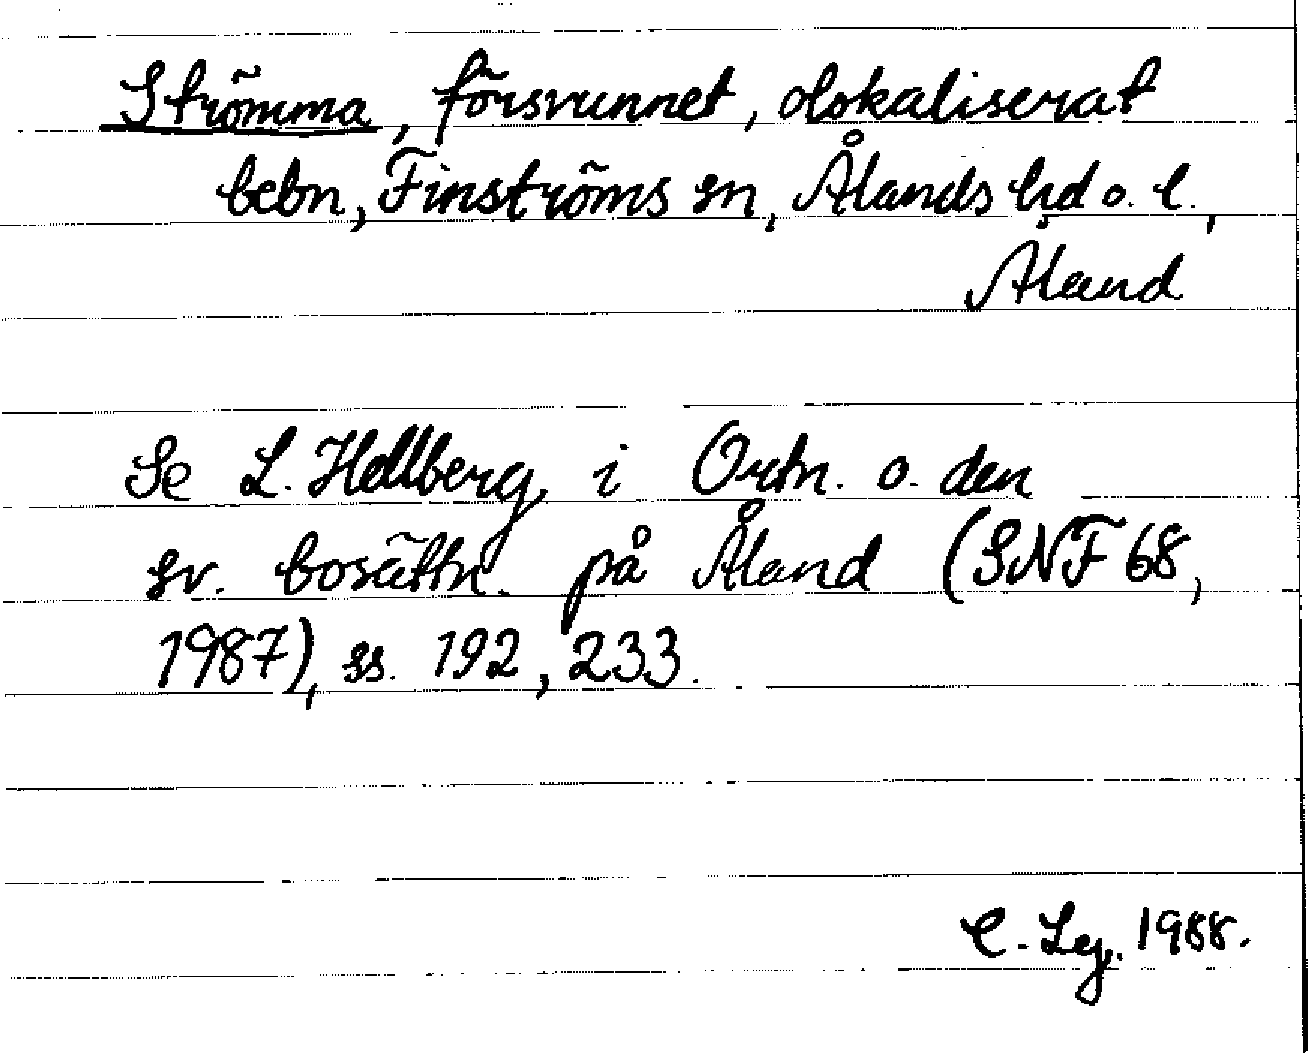 Strömma, försvunnet, olokaliserat
bebn, Finströms sn, Ålands hd o. l.,
Åland
Se L. Hellberg, i Ortn. o. den
sv. bosättn. på Åland (SNF 68,
1987), ss. 192, 233.
C. Lej. 1988.